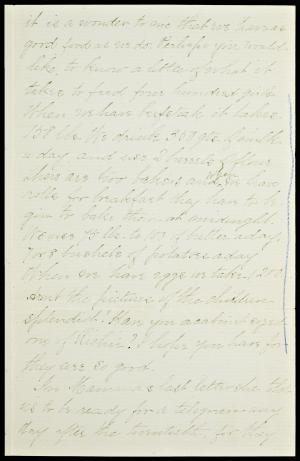 it is a wonder to me that we have as
good food as we do. Perhaps you would
like to know a little of what it
takes to feed four hundred girls.
When we have beefsteak it takes
158 lbs. We drink 380 qts. of milk
a day and use 2 barrels of flour
there are two bakers and if we have
rolls for breakfast they have to be
gin to bake them at midnight.
We use 75 lbs. to 100 of butter a day.
7 or 8 bushels of potatoes a day
When we have eggs we take 1,200
the pictures of the children
splendid! Have you a
one of ? I hope you have for
they are so good.
In Mamma's last letter she
us to be ready for a telegram any
day after the twentieth, for they